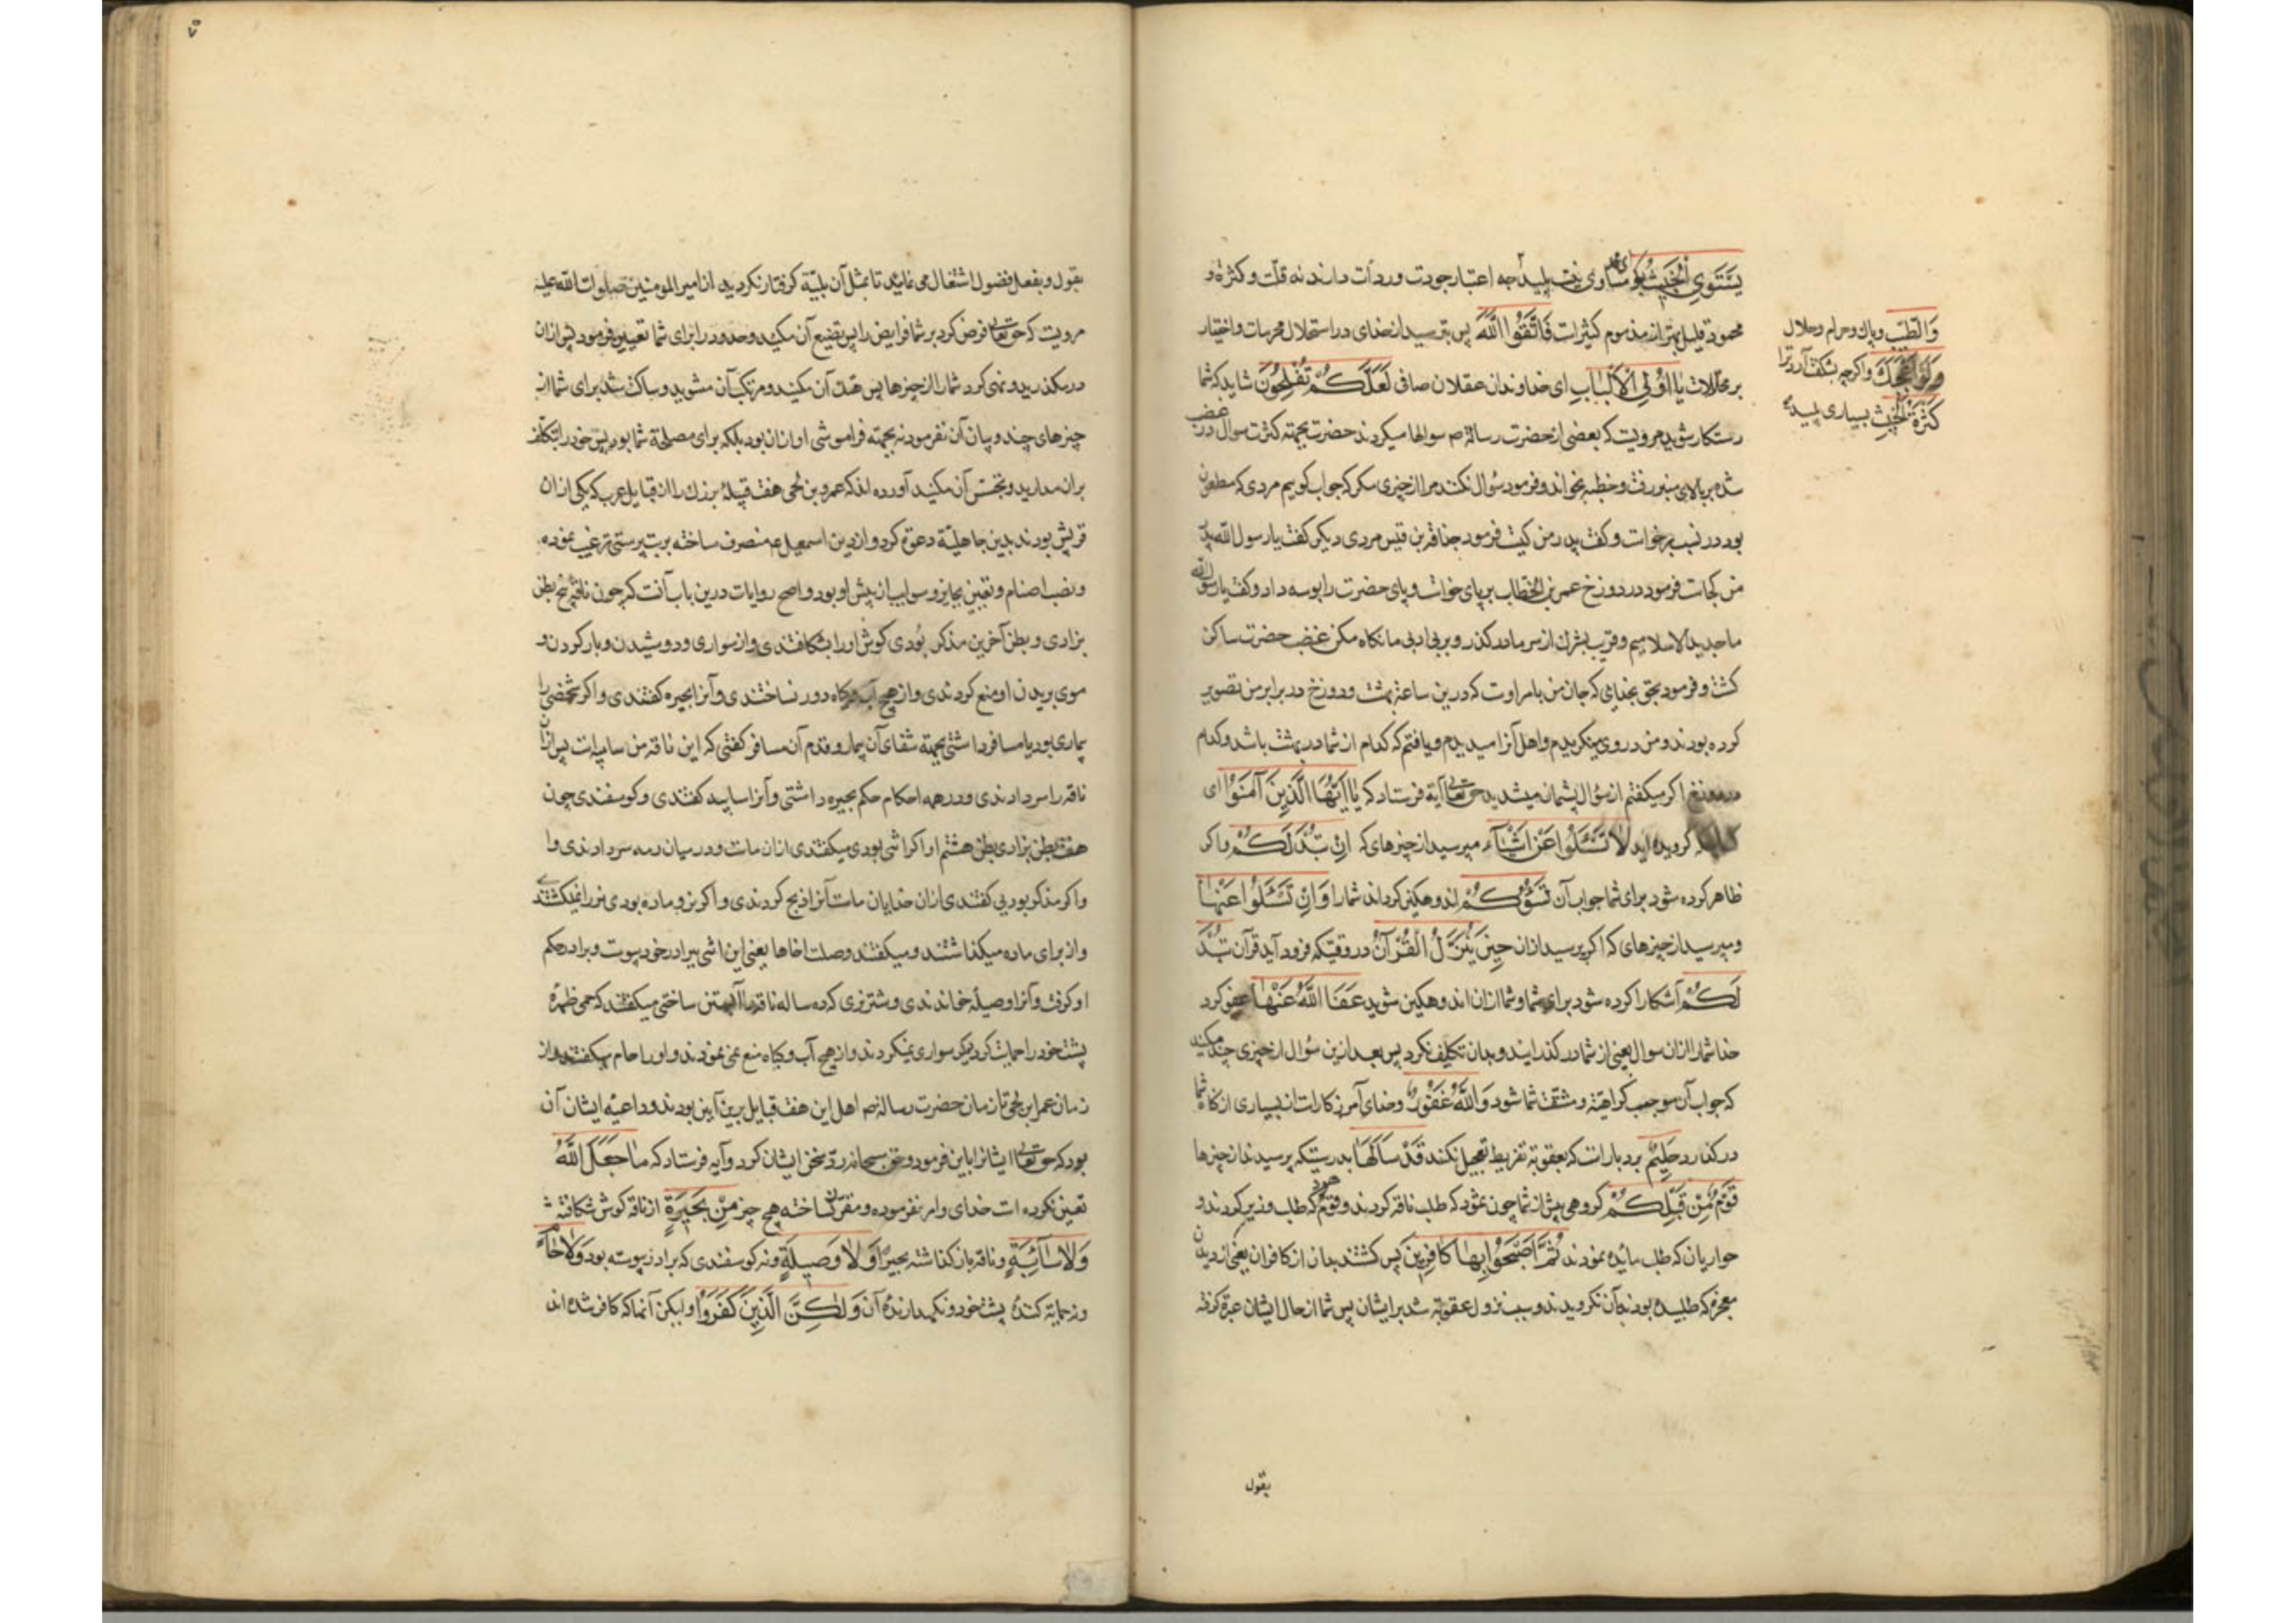 یَسْتَوِی الْخَبِیثُ بکو مساوی نیست پلید چه اعتبار جودت و ردأت داند نه قلت و کثرة و
محمود قلیل بهتر از مذموم کثیرات فَاتَّقُوا اللَّهَ پس بترسید از خدای در استحلال محرمات و اختیار
بر محللات یَا اُولِی الْاَلْبَابِ ای خداوندان عقلان صافی لَعَلَّکُمْ تُفْلِحُونَ شاید که شما
رستکار شوید مرویست که بعضی از حضرت رسالة ص سوالها میکردند حضرت بجهته کثرت سوال در غضب
شده بر بالای منبر رفت و خطبه بخواند و فرمود سُوال نکنند مرا از چیزی مکر که جواب کویم مردی که مطعون
بود در نسب برخوات و کفت پدر من کیست فرمود حذافة بن قیس مردی دیکر کفت یا رسول اللّه پدر
من کجاست فرمود در دوزخ عمر بن الخطاب بر پای خواست و پای حضرت را بوسه داد و کفت یا رسول اللّه
ما جدید الاسلامیم و قریب بشرک از سر ما درکذر و بر بی ادبی ما نکاه مکن غضب حضرت ساکن
کشت و فرمود بحق بخدایی که جان من بامر اوست که درین ساعة بهشت و دوزخ در برابر من تصویر
کرده بودند و من در وی مینکریدم و اهل آنرا میدیدم و یافتم که کدام از شما در بهشت باشد و کدام
اکر میکفتم از سؤال پشمان میشدید حق تعالی آیة فرستاد که یَا اَیُّهَا الَّذِینَ آمَنُوا ای
کرویده اید لَا تَسْئَلُوا عَنْ اَشْیَاءَ مپرسید از چیزهای که اِنْ تُبْدَ لَکُمْ واکر
ظاهر کرده شود برای شما جواب آن تَسُؤْکُمْ اندوهکین کرداند شما را وَاِنْ تَسْئَلُوا عَنْهَا
و مپرسید از چیزهای که اکر پرسید از ان حِینَ یُنَزَّلُ الْقُرْآنُ در وقتیکه فرود آید قرآن تُبْدَ
لَکُمْ آشکارا کرده شود برای شما و شما از ان اندوهکین شوید عَفَا اللَّهُ عَنْهَا عفو کرد
خدا شما را از ان سوال یعنی از شما در کذرایند و بدان تکلیف نکرد پس بعد ازین سُوال از چیزی چند مکنید
که جواب آن موجب کراهیة و مشقت شما شود وَاللَّهُ غَفُورٌ و خدای آمرزکارات از بسیاری از کناه شما
درکذارد حَلِیمٌ بردبارات که بعقوبة تفریط تعجیل نکند قَدْ سَاَلَهَا بدرستیکه پرسیدند از چیزها
قَوْمٌ مِنْ قَبْلِکُمْ کروهی پیش از شما چون ثمود که طلب ناقه کردند و قوم هود که طلب وزیر کردند و
حواریان که طلب مائده نمودند ثُمَّ اَصْبَحُوا بِهَا کَافِرِینَ پس کشتند بدان از کافران یعنی از دیدن
معجزه که طلبیده بودند بآن نکرویدند و سبب نزول عقوبة شد بر ایشان پس شما از حال ایشان عبرة کرفته
وَالطَّیِّبُ و پاک و حرام و حلال
وَلَوْ اَعْجَبَکَ و اکرچه بشکفت آرد ترا
کَثْرَةُ الْخَبِیثِ بسیاری پلیده
بقول
بقول و بفعل فضول اشتغال می نمائید تا بمثل آن بلیّة کرفتار نکردید از امیر المومنین صلوات اللّه علیه
مرویست که حق تعالی فرض کرد بر شما فرایض را پس تضیع آن مکنید و حدود را برای شما تعیین فرمود پس از ان
درمکذرید و نهی کرد شما را از چیزها پس هتک آن مکنید و مرتکب آن مشوید و ساکت شد برای شما از
چیزهای چند و بیان آن نفرمود نه بجهته فراموشی او از ان بود بلکه برای مصلحة شما بود پس خود را بتکلف
بران مدارید و تجسّس آن مکنید آورده اند که عمرو بن لحی هفت قبیلهٔ بزرک را از قبایل عرب که یکی از ان
قریش بودند بدین جاهلیّة دعوة کرد و از دین اسمعیل ع منصرف ساخته بر بت پرستی ترغیب نموده
و نصب اصنام و تعیین بحایر و سوایب از پیش او بود و اصح روایات درین باب آنست که چون ناقه پنج بطن
بزادی و بطن آخرین مذکر بُودی کوش او را بشکافتندی و از سواری و دوشیدن و بار کردن و
موی بریدن او منع کردندی و از هیچ آب و کیاه دور نساختندی و آنرا بحیره کفتندی و اکر شخصی را
بیماری بود یا مسافر داشتی بجهته شفای آن بیمار و قدوم آن مسافر کفتی که این ناقه من سایبه است پس آن
ناقه را سر دادندی و در همه احکام حکم بحیره داشتی و آنرا سایبه کفتندی و کوسفندی چون
هفت بطن بزادی بطن هشتم او اکر انثی بودی میکفتندی از ان ماست و در میان رمه سر دادندی و ا
واکر مذکر بودی کفتندی از ان خدایان ماست آنرا ذبح کردندی و اکر نر و ماده بودی نر را نمیکشتند
و از برای ماده میکذاشتند و میکفتند وصلت اخاها یعنی این انثی ببرادر خود پیوست و برادر حکم
او کرفت و آنرا وصیله خواندندی و شتر نری که ده ساله ناقه را آبستن ساختی میکفتند که حمی ظهره
پشت خود را حمایت کرد پس سواری نمیکردند و از هیچ آب و کیاه منع نمی نمودند و او را حام میکفتند و از
زمان عمرو بن لحی تا زمان حضرت رسالة ص اهل این هفت قبایل برین آیین بودند و داعیهٔ ایشان آن
بود که حق تعالی ایشانرا باین فرموده و حق سبحانه رد سخن ایشان کرد و آیه فرستاد که مَا جَعَلَ اللَّهُ
تعین نکرده است خدای و امر نفرموده و مقرر نساخته هیچ چیز مِنْ بَحِیرَةٍ از ناقه کوش شکافته
وَلَا سَائِبَةٍ و ناقه باز کذاشته بچرا وَلَا وَصِیلَةٍ و نه کوسفندی که ببرادر پیوسته بود وَلَا حَامٍ
و نه حمایة کنندهٔ پشت خود و نکهدارندهٔ آن وَلَکِنَّ الَّذِینَ کَفَرُوا و لیکن آنها که کافر شده اند